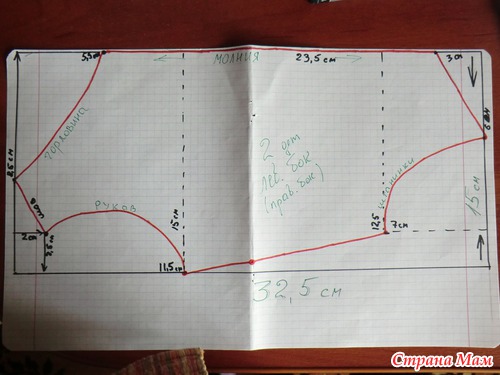 5,5 см
МОЛНИЯ
23,5 см
3 см
горловина
8,5 см
6 см
рукав
15 см
2 дет
лев. бок
(прав. бок)
12,5
7 см
15 см
2 см
11,5 см
32,5 см
Страна Мам